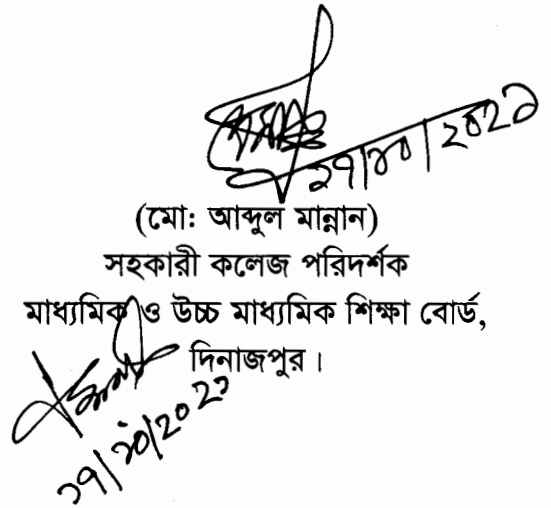 ১৭/১০/২০২১
(মো: আব্দুল মান্নান)
সহকারী কলেজ পরিদর্শক
মাধ্যমিক ও উচ্চ মাধ্যমিক শিক্ষা বোর্ড,
দিনাজপুর।
১৭/১০/২০২১